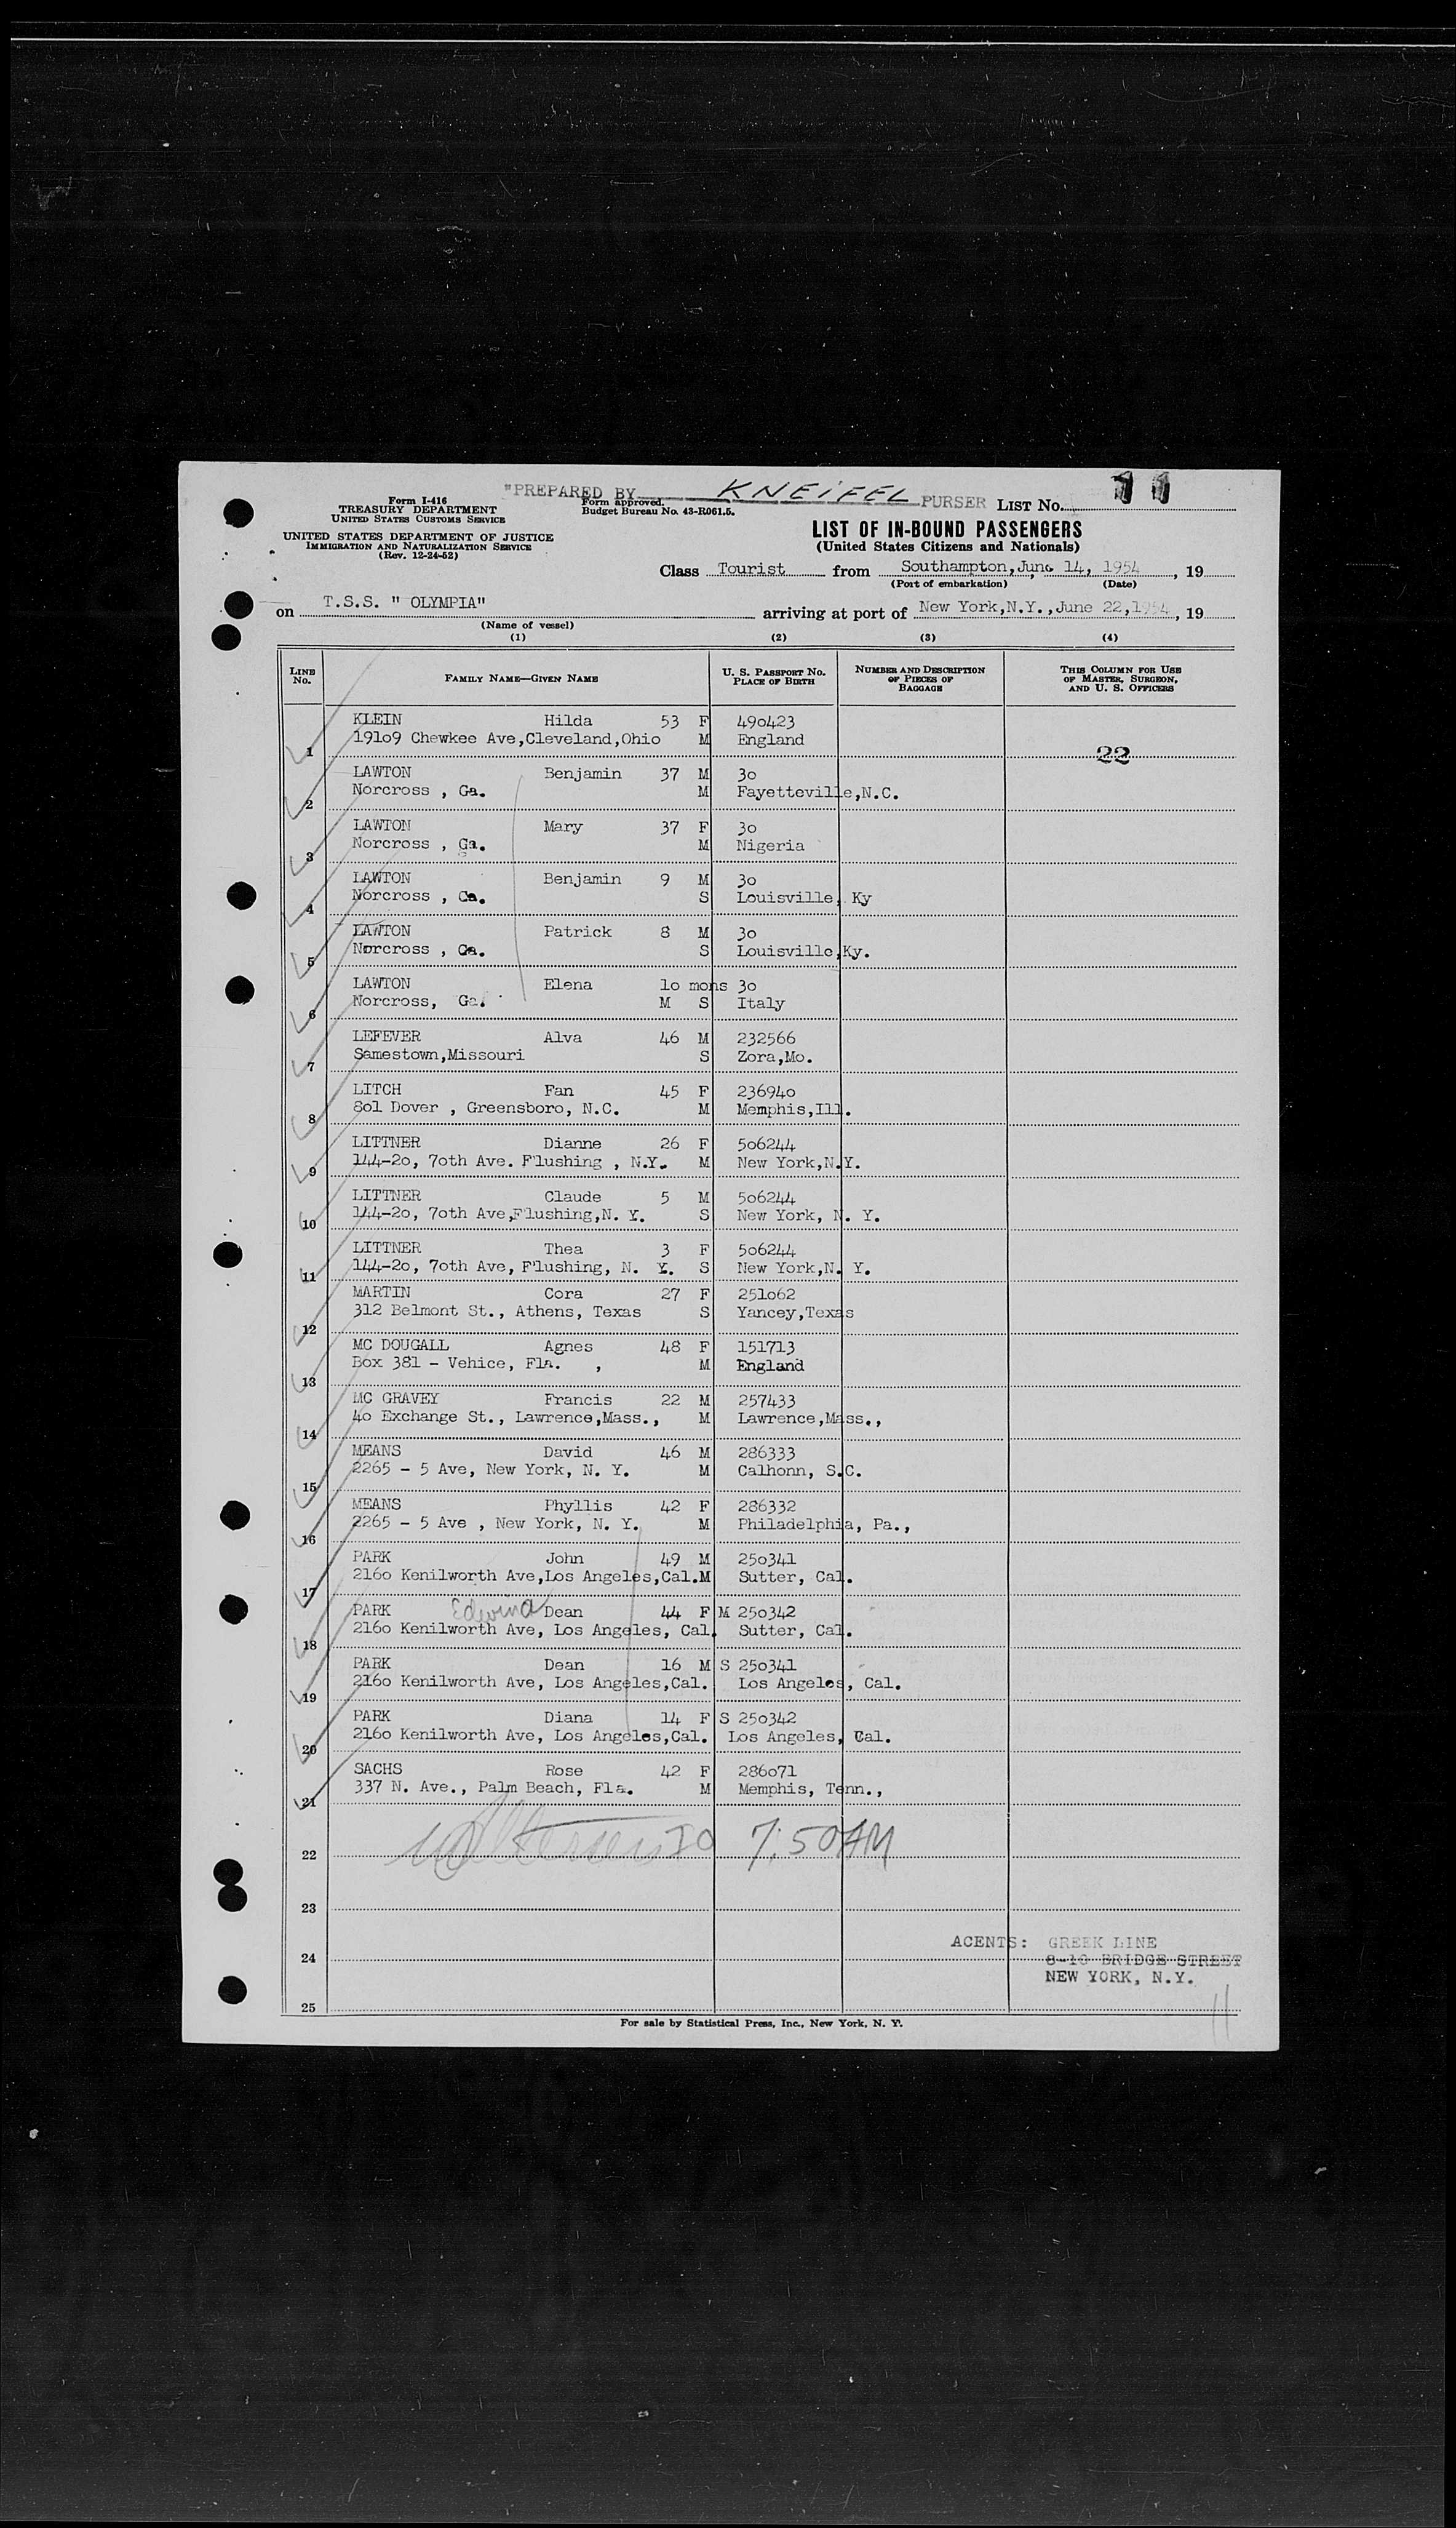 "PREPARED BY KNEIFEL PURSER LIST No. 11
Form I-416
TREASURY DEPARTMENT
UNITED STATES CUSTOMS SERVICE
Form approved.
Budget Bureau No. 43-R061.5.
UNITED STATES DEPARTMENT OF JUSTICE
IMMIGRATION AND NATURALIZATION SERVICE
(Rev. 12-24-52)
LIST OF IN-BOUND PASSENGERS
(United States Citizens and Nationals)
Class Tourist from Southampton, June 14, 1954, 19
(Port of embarkation) (Date)
on T.S.S. " OLYMPIA" arriving at port of New York,N.Y.,June 22,1954, 19
(Name of vessel)
(1) (2) (3) (4)
LINE No. FAMILY NAME—GIVEN NAME U. S. PASSPORT No. PLACE OF BIRTH NUMBER AND DESCRIPTION OF PIECES OF BAGGAGE THIS COLUMN FOR USE OF MASTER, SURGEON, AND U. S. OFFICERS
KLEIN Hilda 53 F 490423
1 19109 Chewkee Ave,Cleveland,Ohio M England 22
LAWTON Benjamin 37 M 30
2 Norcross , Ga. M Fayetteville,N.C.
LAWTON Mary 37 F 30
3 Norcross , Ga. M Nigeria
LAWTON Benjamin 9 M 30
4 Norcross , Ga. S Louisville, Ky
LAWTON Patrick 8 M 30
5 Norcross , Ga. S Louisville,Ky.
LAWTON Elena 10 mons 30
6 Norcross, Ga. M S Italy
LEFEVER Alva 46 M 232566
7 Samestown,Missouri S Zora,Mo.
LITCH Fan 45 F 236940
8 801 Dover , Greensboro, N.C. M Memphis,Ill.
LITTNER Dianne 26 F 506244
9 144-20, 70th Ave. Flushing , N.Y. M New York,N.Y.
LITTNER Claude 5 M 506244
10 144-20, 70th Ave,Flushing,N. Y. S New York, N. Y.
LITTNER Thea 3 F 506244
11 144-20, 70th Ave, Flushing, N. Y. S New York,N. Y.
MARTIN Cora 27 F 251062
12 312 Belmont St., Athens, Texas S Yancey,Texas
MC DOUGALL Agnes 48 F 151713
13 Box 381 - Vehice, Fla. , M England
MC GRAVEY Francis 22 M 257433
14 40 Exchange St., Lawrence,Mass., M Lawrence,Mass.,
MEANS David 46 M 286333
15 2265 - 5 Ave, New York, N. Y. M Calhonn, S.C.
MEANS Phyllis 42 F 286332
16 2265 - 5 Ave , New York, N. Y. M Philadelphia, Pa.,
PARK John 49 M 250341
17 2160 Kenilworth Ave,Los Angeles,Cal.M Sutter, Cal.
PARK Edwina Dean 44 F M 250342
18 2160 Kenilworth Ave, Los Angeles, Cal. Sutter, Cal.
PARK Dean 16 M S 250341
19 2160 Kenilworth Ave, Los Angeles,Cal. Los Angeles, Cal.
PARK Diana 14 F S 250342
20 2160 Kenilworth Ave, Los Angeles,Cal. Los Angeles, Cal.
SACHS Rose 42 F 286071
21 337 N. Ave., Palm Beach, Fla. M Memphis, Tenn.,
22 IO 7:50AM
23
AGENTS: GREEK LINE
24 8-10 BRIDGE STREET
NEW YORK, N.Y.
25 11
For sale by Statistical Press, Inc., New York, N. Y.